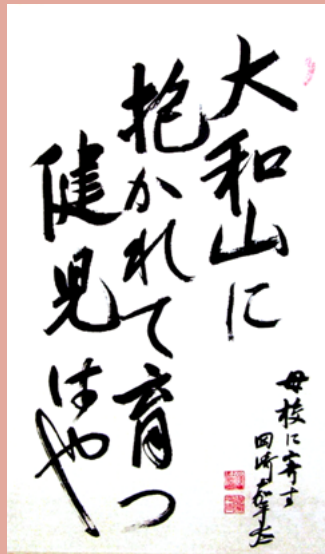 大和山に
抱かれて育つ
健児はや
母校に寄す
田崎